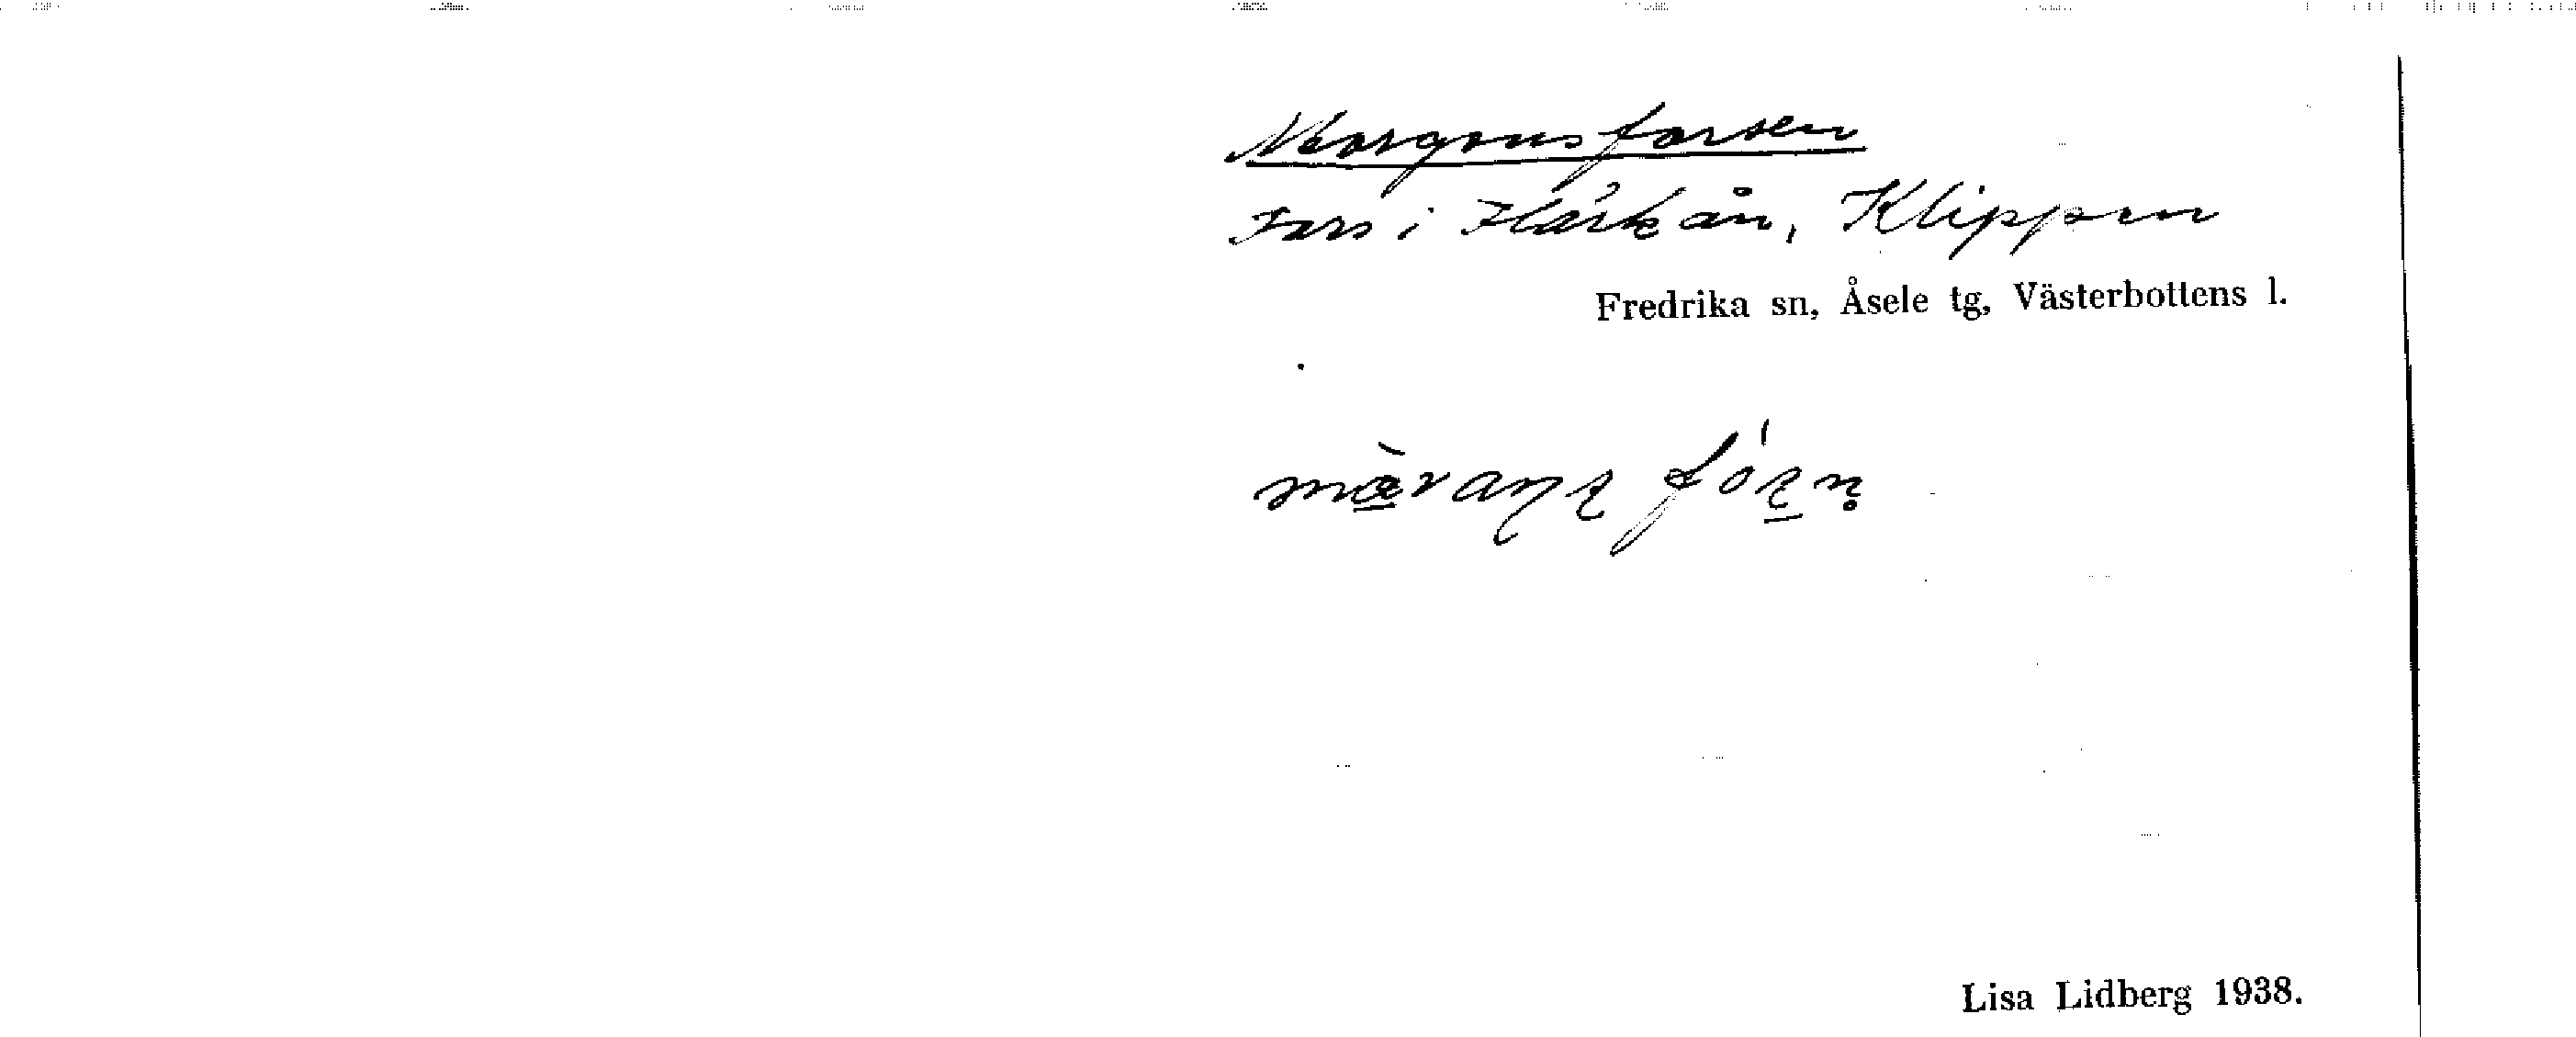 Morgonsforsen
Fors i Flärkån, Klippen
Fredrika sn, Åsele tg, Västerbottens l.
Lisa Lidberg 1938.